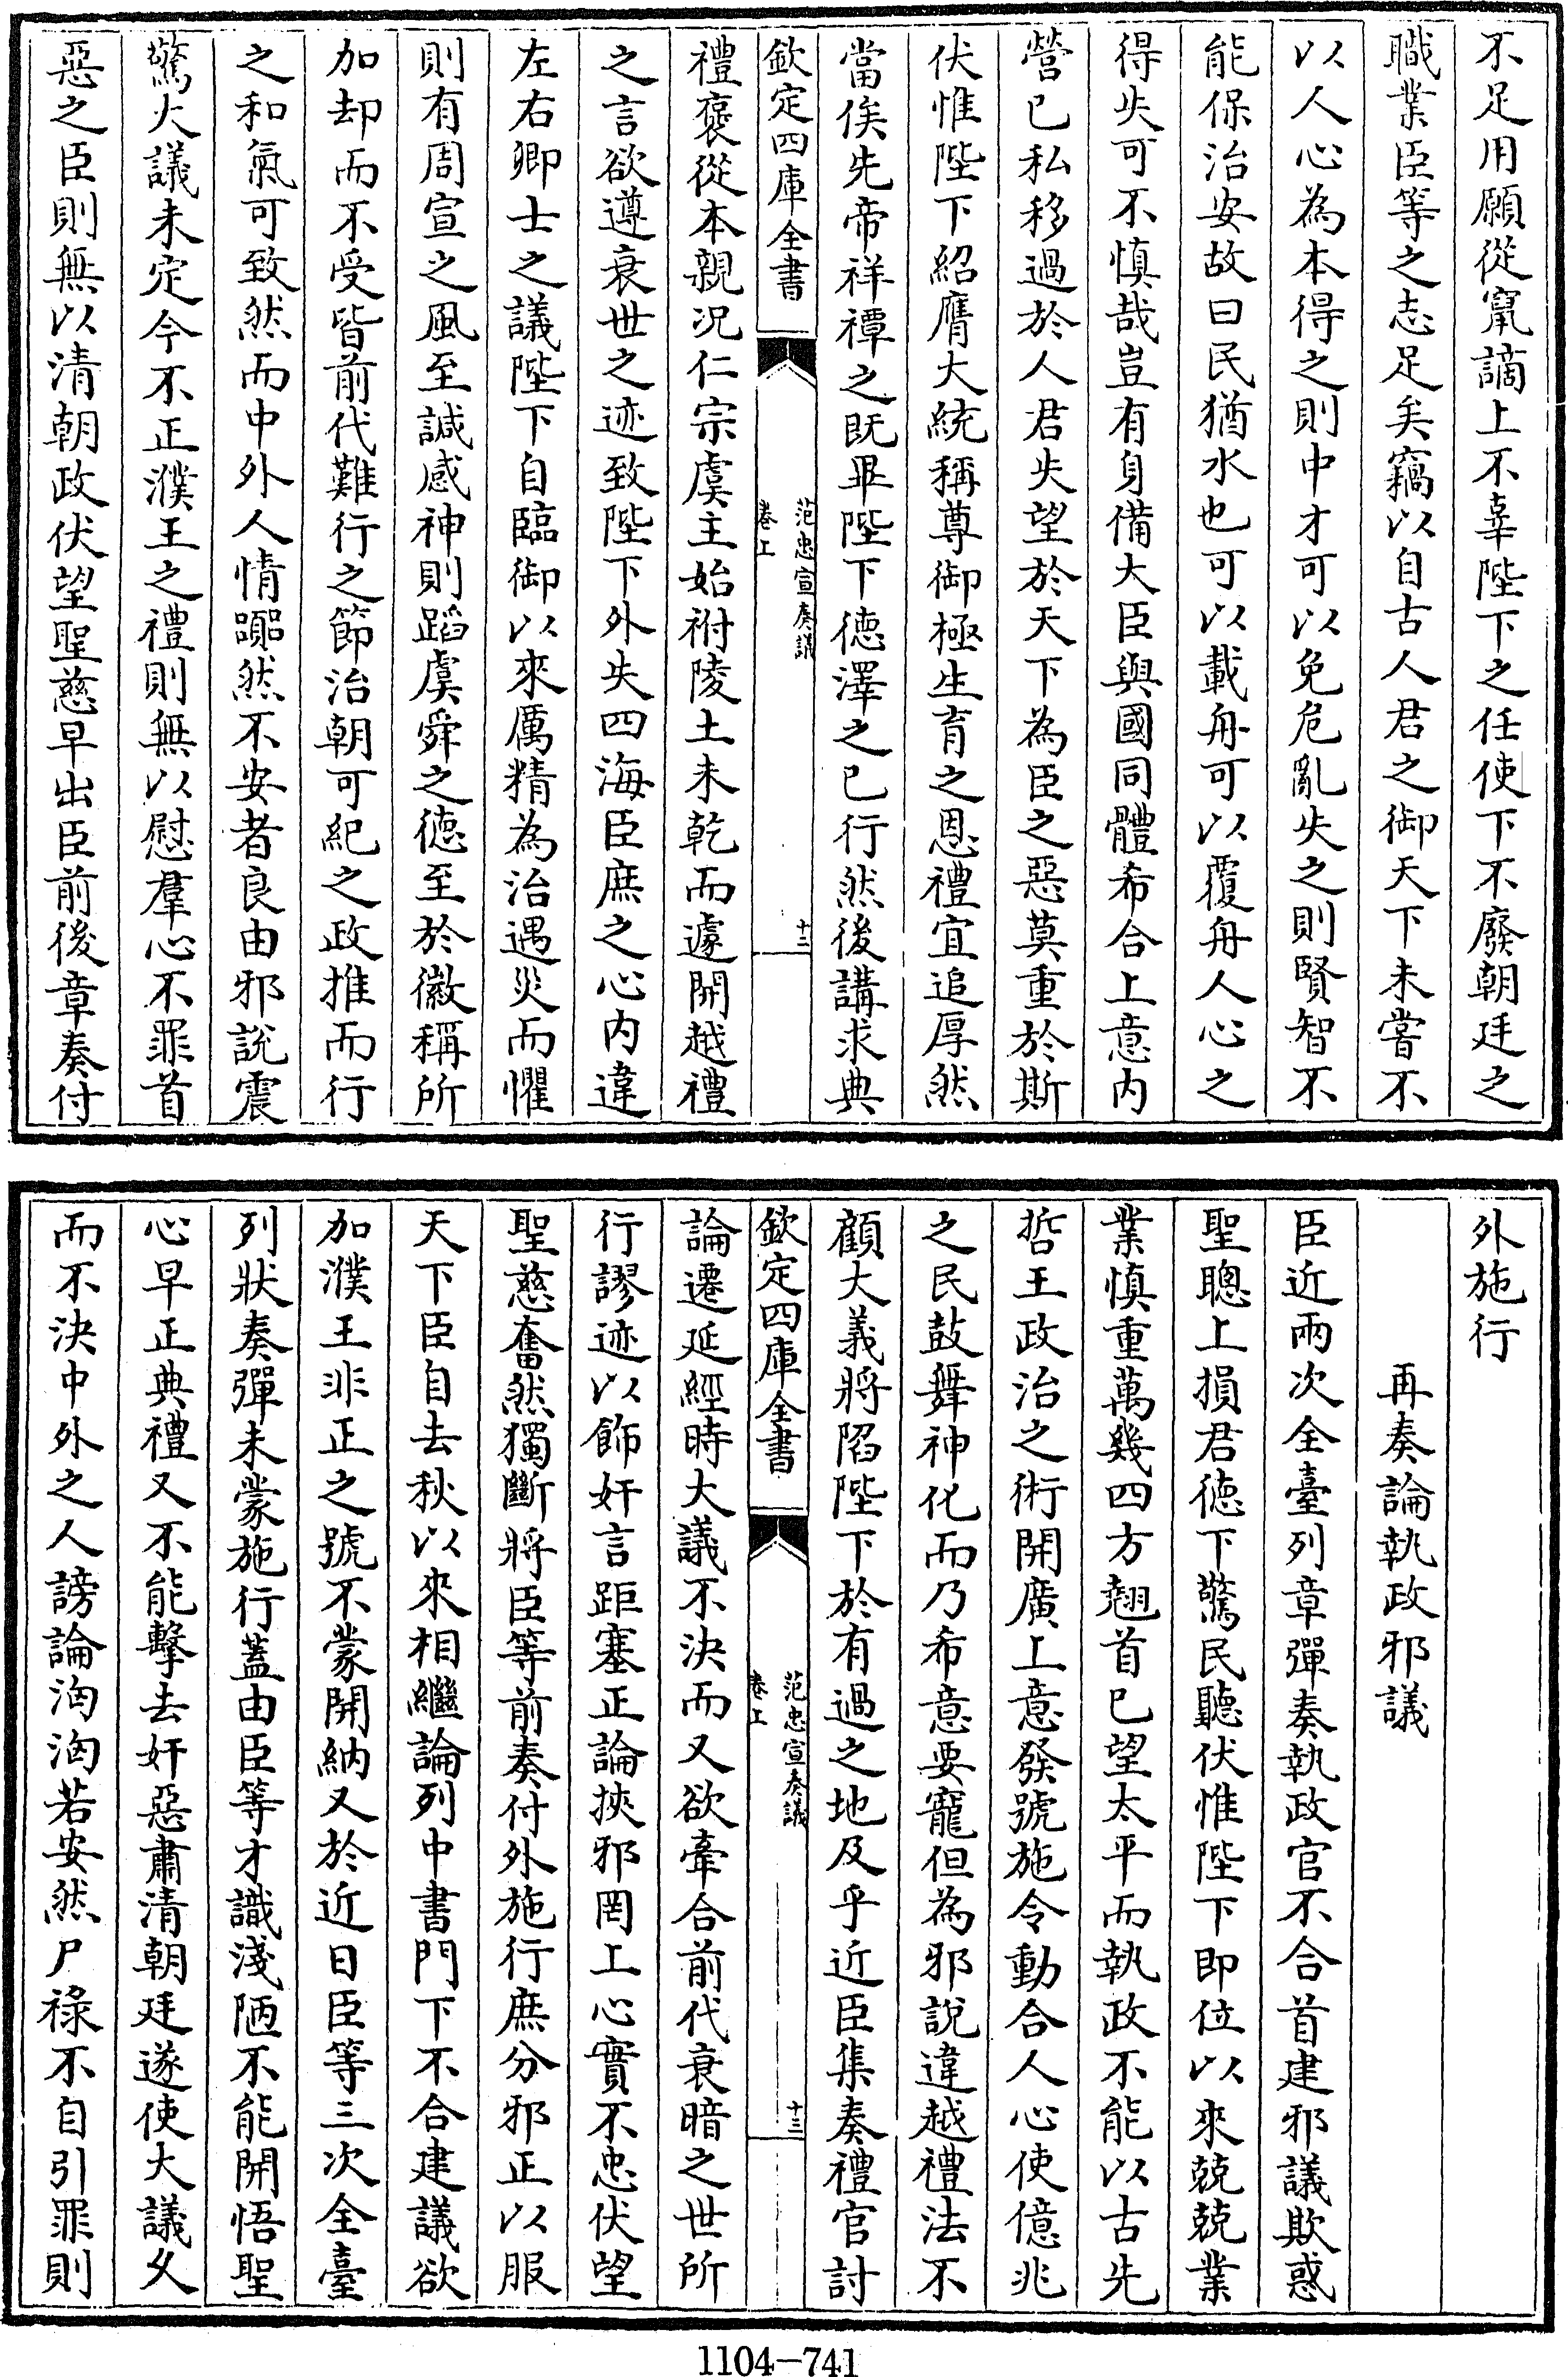 不足用願從竄謫上不辜陛下之任使下不廢朝廷之
職業臣等之志足矣竊以自古人君之御天下未嘗不
以人心為本得之則中才可以免危亂失之則賢智不
能保治安故曰民猶水也可以載舟可以覆舟人心之
得失可不慎哉豈有身備大臣與國同體希合上意内
營已私移過於人君失望於天下為臣之惡莫重於斯
伏惟陛下紹膺大統稱尊御極生育之恩禮宜追厚然
當俟先帝祥禫之既畢陛下德澤之已行然後講求典
欽定四庫全書
范忠宣奏議
卷上
十三
禮褒從本親况仁宗虞主始祔陵土未乾而遽開越禮
之言欲遵衰世之迹致陛下外失四海臣庶之心内違
左右卿士之議陛下自臨御以來厲精為治遇災而懼
則有周宣之風至誠感神則蹈虞舜之德至於徽稱所
加却而不受皆前代難行之節治朝可紀之政推而行
之和氣可致然而中外人情嚻然不安者良由邪說震
驚大議未定今不正濮王之禮則無以慰羣心不罪首
惡之臣則無以清朝政伏望聖慈早出臣前後章奏付
外施行
再奏論執政邪議
臣近兩次全臺列章彈奏執政官不合首建邪議欺惑
聖聰上損君德下驚民聽伏惟陛下即位以來兢兢業
業慎重萬幾四方翹首已望太平而執政不能以古先
哲王政治之術開廣上意發號施令動合人心使億兆
之民鼓舞神化而乃希意要寵但為邪說違越禮法不
顧大義將陷陛下於有過之地及乎近臣集奏禮官討
欽定四庫全書
范忠宣奏議
卷上
十三
論遷延經時大議不決而又欲牽合前代衰暗之世所
行謬迹以飾奸言距塞正論挾邪罔上心實不忠伏望
聖慈奮然獨斷將臣等前奏付外施行庶分邪正以服
天下臣自去秋以來相繼論列中書門下不合建議欲
加濮王非正之號不蒙開納又於近日臣等三次全臺
列狀奏彈未蒙施行蓋由臣等才識淺陋不能開悟聖
心早正典禮又不能擊去奸惡肅清朝廷遂使大議乆
而不決中外之人謗論洶洶若安然尸祿不自引罪則
1104-741